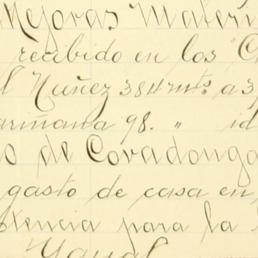 Mejoras Materi
recibido en los "C
l Nuñez 384 mts. a 3
ariñana 98. " id
o de Covadonga
gasto de casa en
tencia para la
Ygual